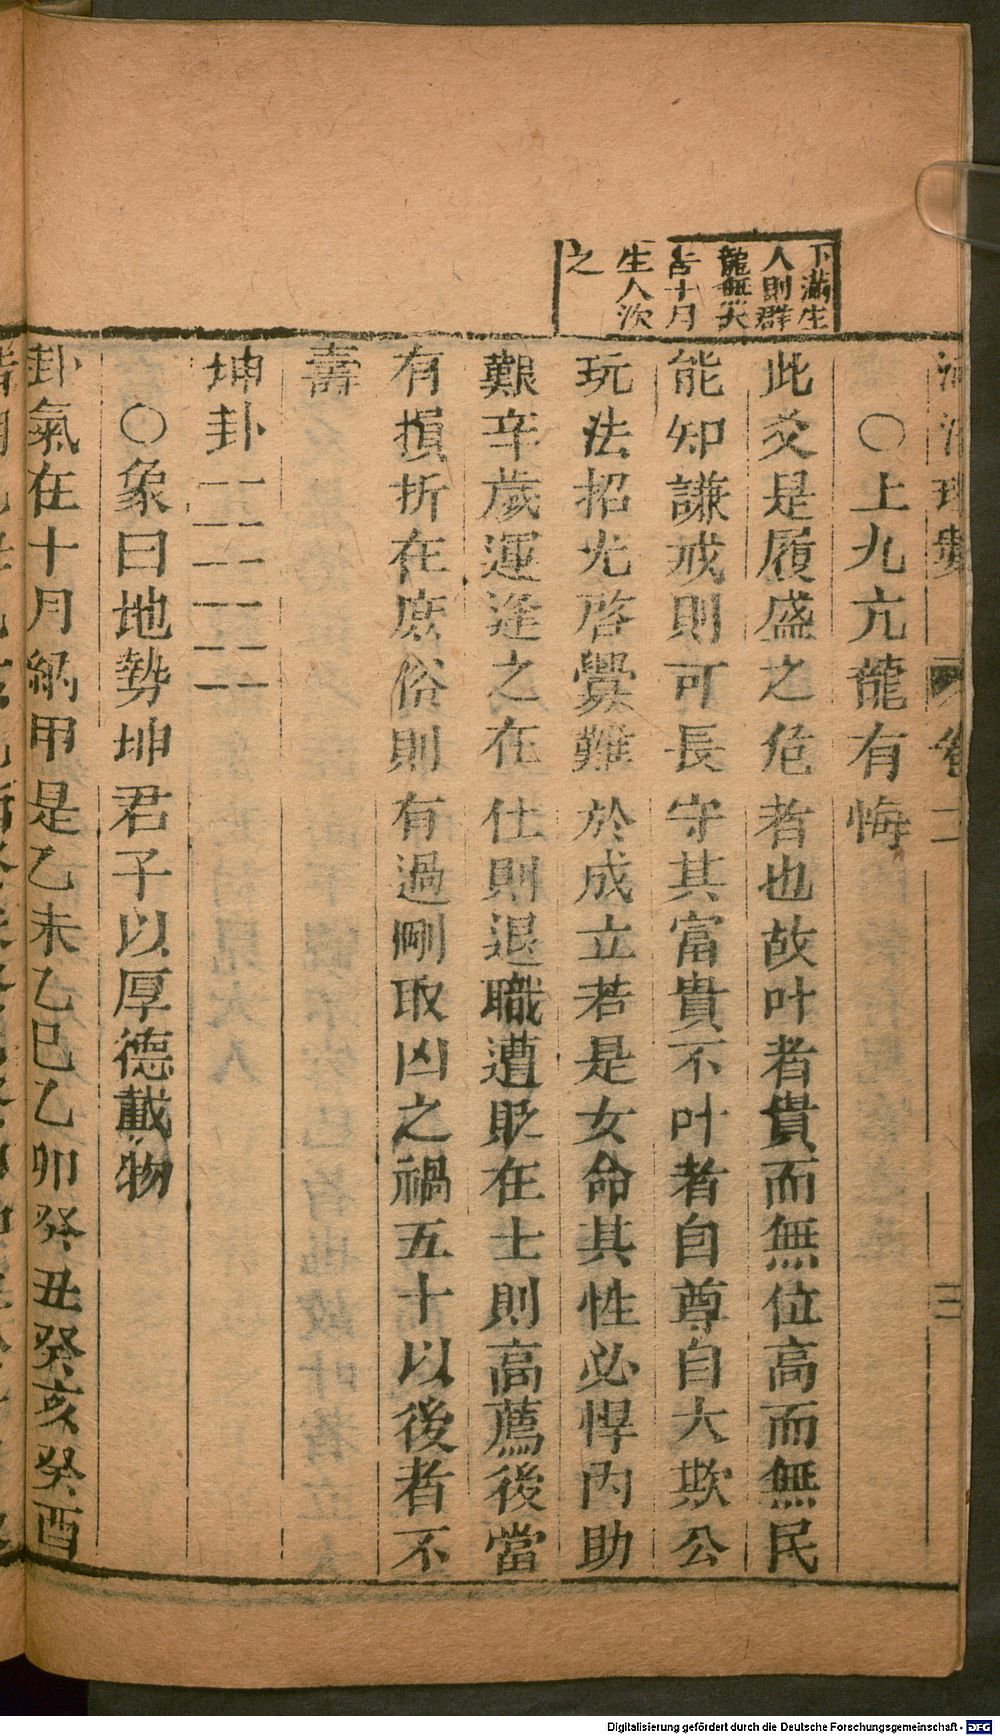 下滿生
人則群
龍無夫
吉十月
生人次
之
卷二
三
○上九亢龍有悔
此爻是履盛之危者也故叶者貴而無位高而無民
能知謙戒則可長守其富貴不叶者自尊自大欺公
玩法招尤啓釁難於成立若是女命其性必悍內助
艱辛歲運逢之在仕則退職遭貶在士則高薦後當
有損折在庶俗則有過剛取凶之禍五十以後者不
壽
坤卦
○象曰地勢坤君子以厚德載物
卦氣在十月納甲是乙未乙巳乙卯癸丑癸亥癸酉
Digitalisierung gefördert durch die Deutsche Forschungsgemeinschaft - DFG